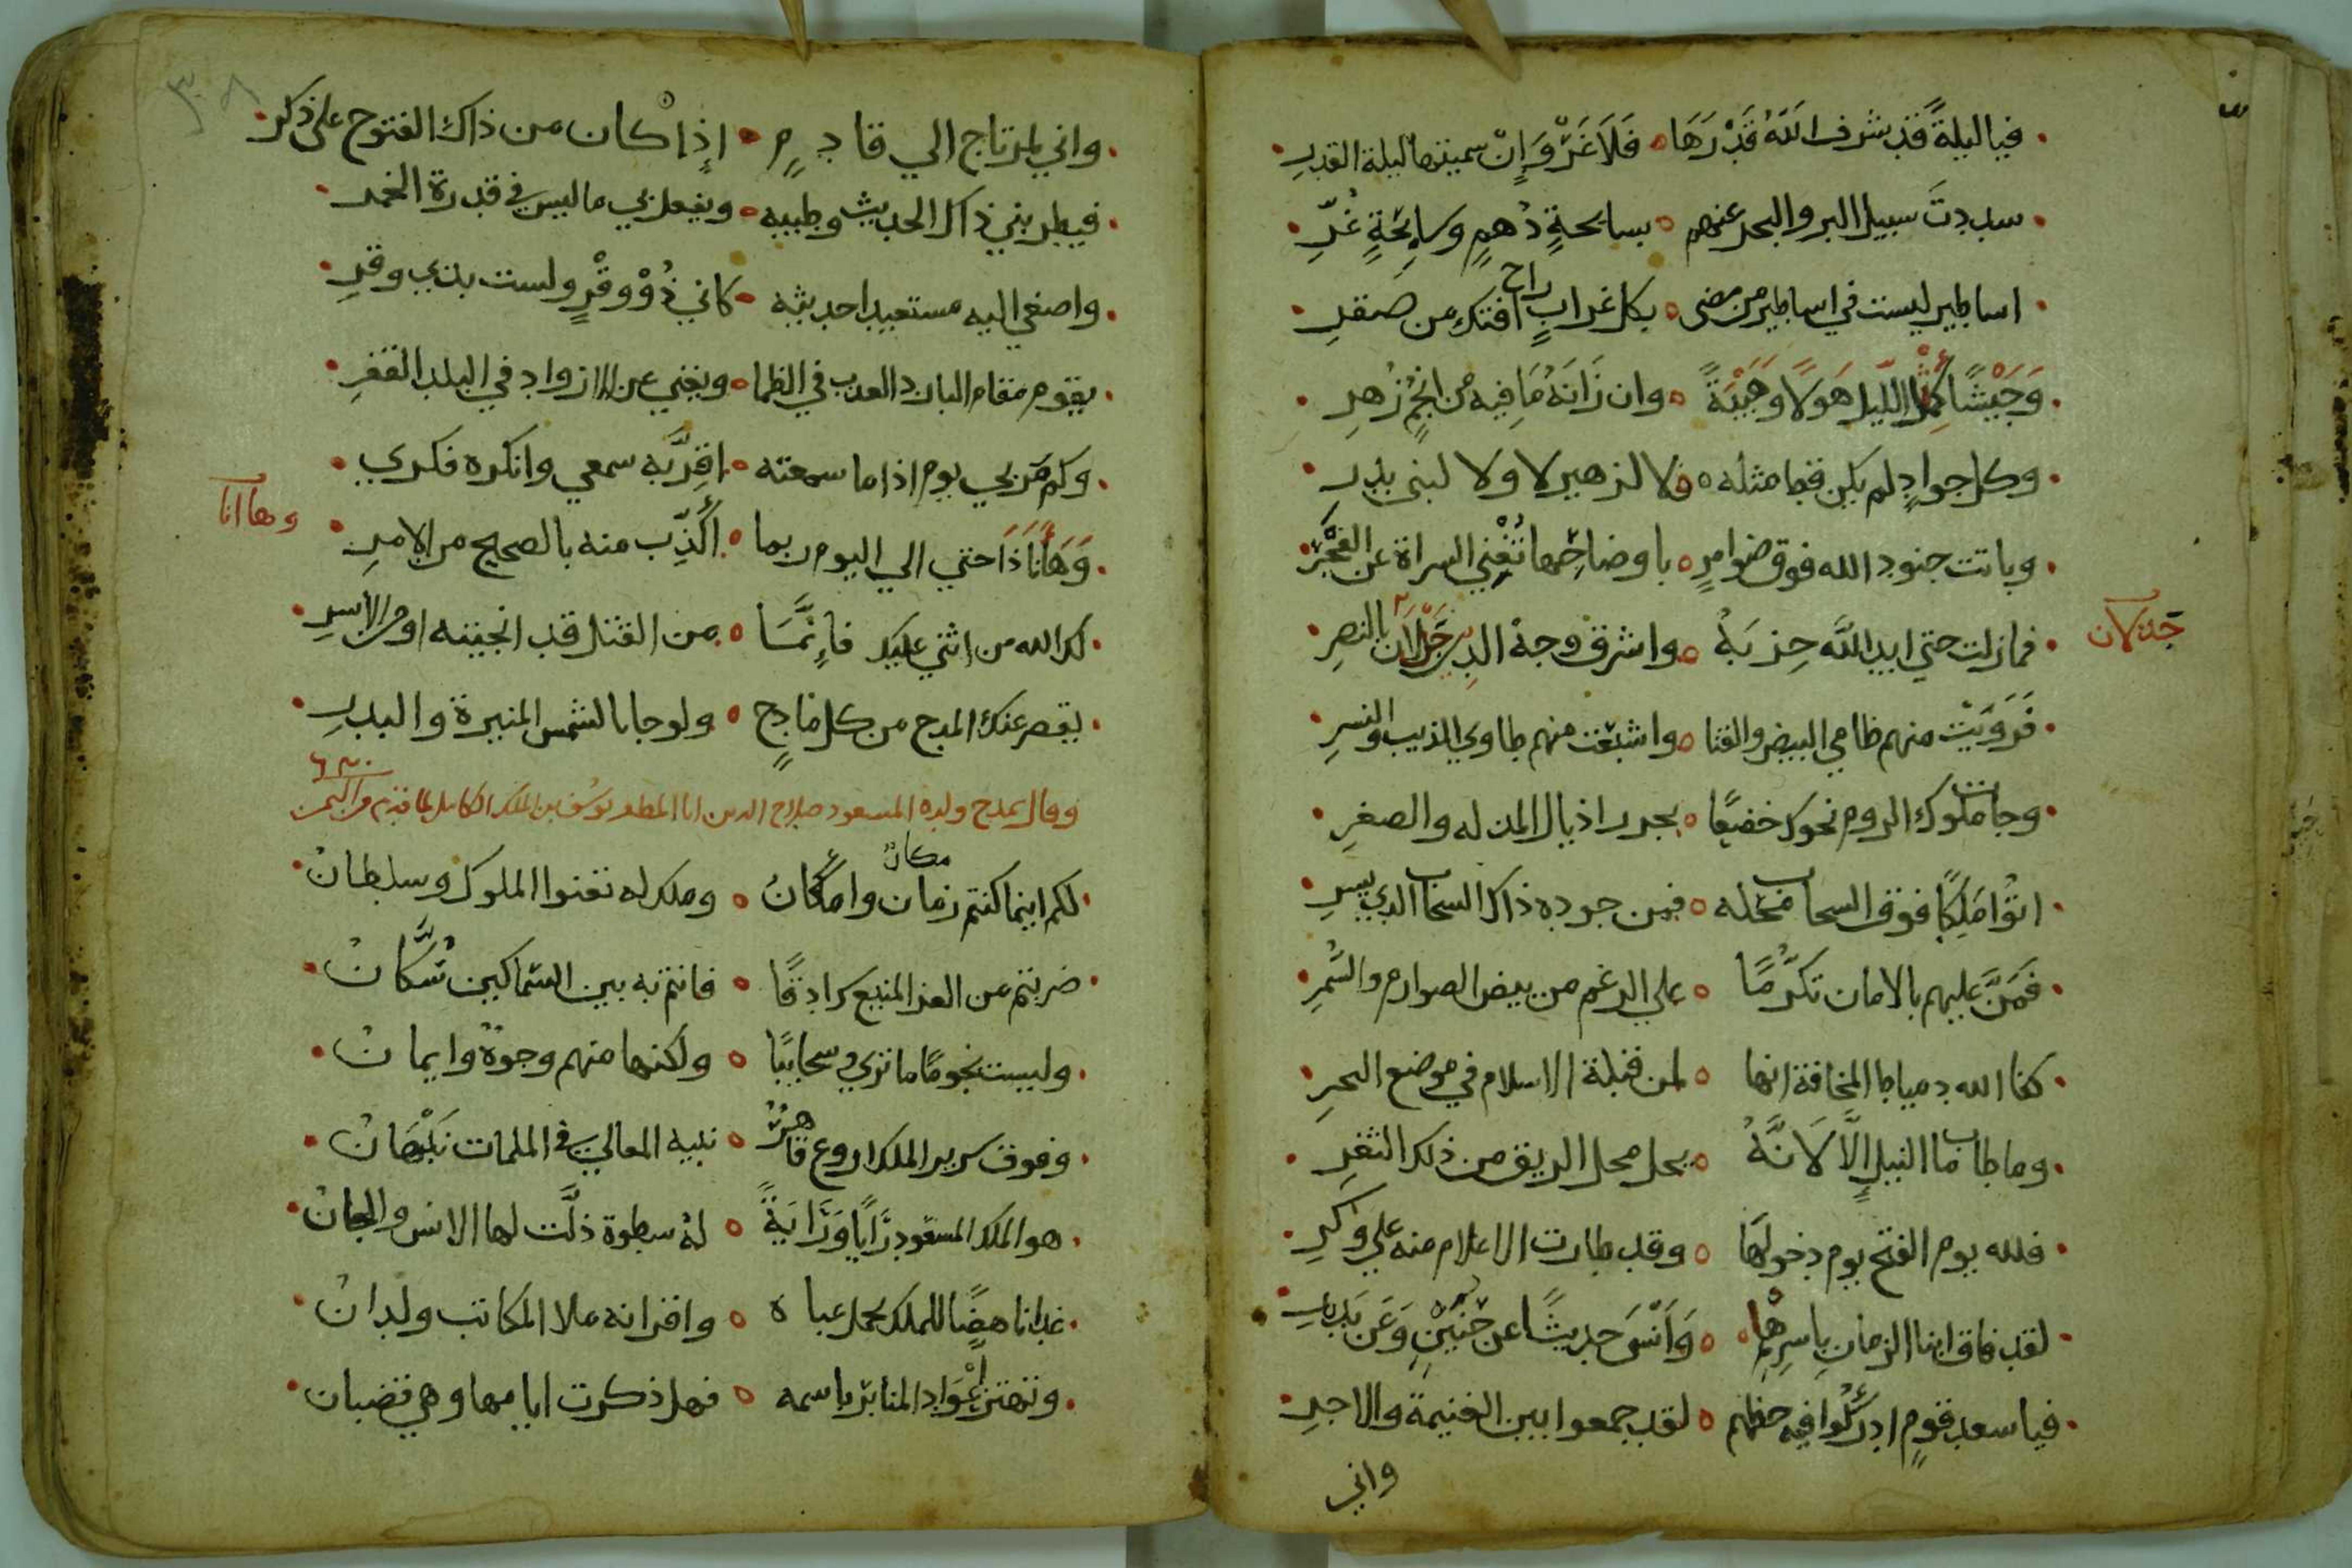 فيا ليلةً قد شرف اللهُ قَدْرَهَا • فَلَا غَرْوَ إنْ سميتها ليلة القدرِ
سددتَ سبيل البر والبحر عنهم • بسابحةٍ دُهمٍ وسابحةٍ غُرِّ
اساطير ليست في اساطير من مضى • بكل غرابٍ راح افتك من صقرِ
وَجَيْشًا كَمِثل الليل هَولًا وَهَيْبَةً • وان زَانَهُ مَا فيه من انجمٍ زُهرِ
وكل جوادٍ لم يكن قط مثله • لا لزهير لا ولا لبنى بدرِ
وباتت جنود الله فوق ضوامرٍ • باوضاحها تُغْنِي السراة عن الفجرِ
فما زلت حتى ايد اللَّه حِزبَهُ • واشرق وجهُ الدين جَذْلَانَ بالنصرِ
جَذلان
فَرَوَّيْتَ منهم ظامي البيض والقنا • واشبَعْت منهم طاوي الذيب والنسرِ
وجات ملوك الروم نحوك خضعًا • بجرر اذيال المذله والصغرِ
اتوْا مَلِكًا فوق السحاب محله • فمن جوده ذاك السحاب الذي يسرِ
فَمَنَّ عليهم بالامان تكَرُّمًا • علي الرغم من بيض الصوارم والسُّمرِ
كفا الله دمياط المخافة انها • لمن قبلة الاسلام في موضع النحرِ
وما طاب ما النيل إِلَّا لَانَّهُ • يحل محل الريق من ذلك الثغرِ
فلله يوم الفتح يوم دخولها • وقد طارت الاعلام منه علي وكرِ
لقد فاق ايام الزمانِ بِاسرِهَا • وَأَنْسَى حديثًا عن حُنَيْنٍ وَعَن بَدرِ
فيا سعد قومٍ ادركُوا فيه حظهم • لقد جمعوا بين الغنيمة والاجرِ
واني
٣٠٨
واني لمرتاح الي قادِمٍ • إذا كان من ذاك الفتوح على ذكرِ
فيطربني ذاك الحديث وطيبه • ويفعل بي ما ليس في قدرة الخمرِ
واصغي اليه مستعيد احديثه • كاني ذُوْ وقْرٍ ولست بذي وقرِ
يقوم مقام البارد العذب في الظما • ويغني عن الازواد في البلد القفرِ
وكم مَر بي يوم اذا ما سمعته • اقِرُّ به سمعي وانكره فكري
وَهَا أنَا ذَا حتي الي اليوم ربما • أكَذِّب منه بالصحيح من الامرِ
وها انا
لك الله من اثني عليك فإنمَّا • من القتل قد انجيته او من الاسرِ
يقصر عنك المدح من كل مادحٍ • ولو جا بالشمس المنيرة والبدرِ
وقال يمدح ولده المسعود صلاح الدين ابا المظفر يوسف بن الملك الكامل لما قدم من اليمن
لكم اينما كنتم زمان وامكانُ • وملك له تعنوا الملوك وسلطانُ
مكانٌ
ضربتم من العز المنيع سرادقًا • فانتم به بين السماكين سُكَّانُ
وليست نجومًا ما نري وسحايبًا • ولكنها منهم وجوهٌ وايمانُ
وفوق سرير الملك اروع قاهرٌ • نبيه المعالي في الملمات نَبْهَانُ
هو الملك المسعود رَايًا وَرَايَةً • لهُ سطوة ذلَّت لها الانس والجانُ
غدا ناهضًا للملك يحمل عباه • واقرانه ملا المكاتب ولدانُ
وتهتز أعْوَاد المنابر باسمه • فهل ذكرت ايامها وهي قضبانُ